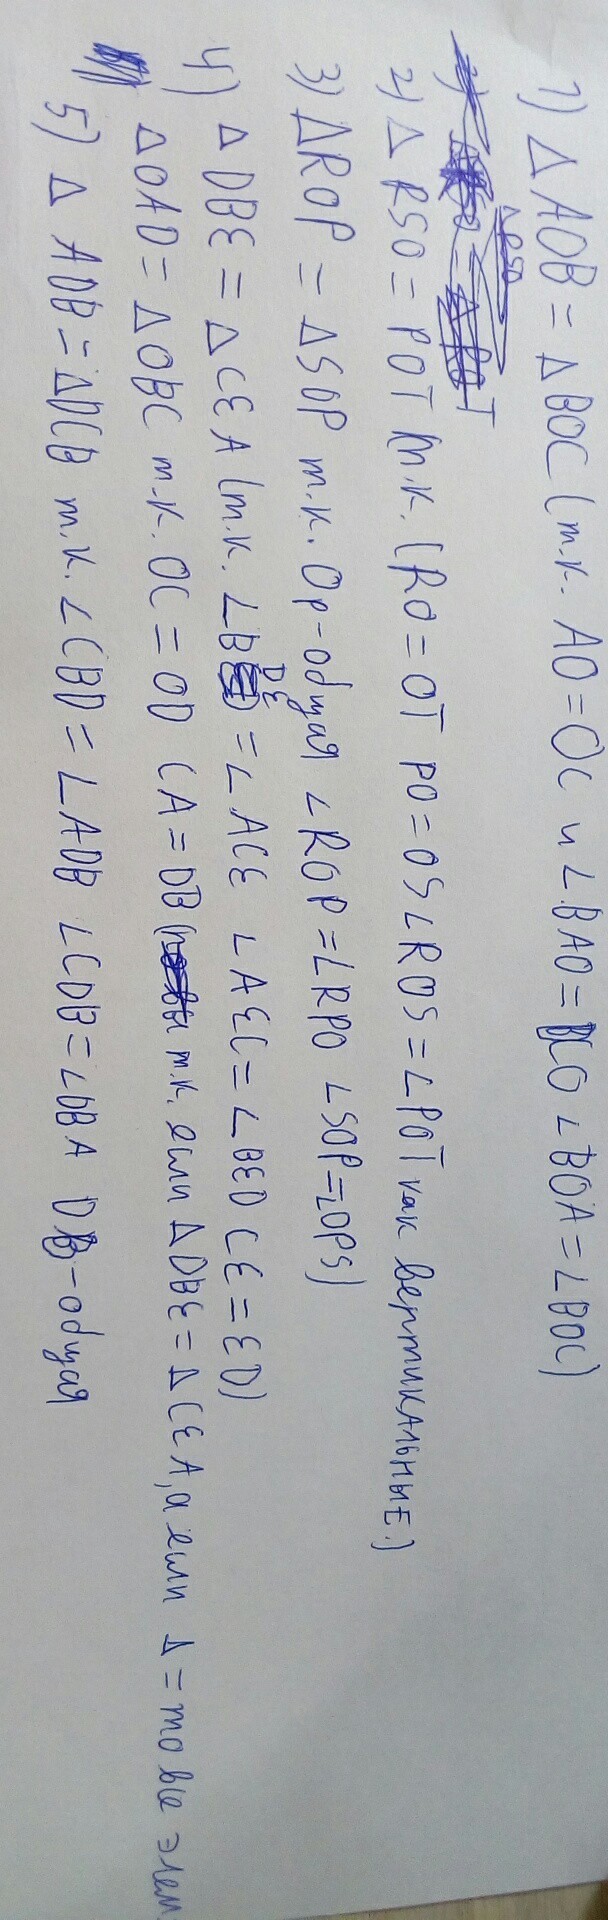 1) Δ AOB = Δ BOC (т.к. AO = OC и ∠BAO = BCO ∠BOA = ∠BOC)
2) Δ RSO = POT т.к. (RO = OT PO = OS ∠ROS = ∠POT как вертикальные.)
3) ΔROP = ΔSOP т.к. OP - общая ∠ROP = ∠RPO ∠SOP = ∠OPS)
4) Δ DBE = Δ CEA (т.к. ∠BDE = ∠ACE ∠AEC = ∠BED CE = ED)
Δ OAD = Δ OBC т.к. OC = OD CA = DB ( т.к. если Δ DBE = Δ CEA, а если Δ = то все элем
5) Δ ADB = ΔDCB т.к. ∠CBD = ∠ADB ∠CDB = ∠DBA DB - общая